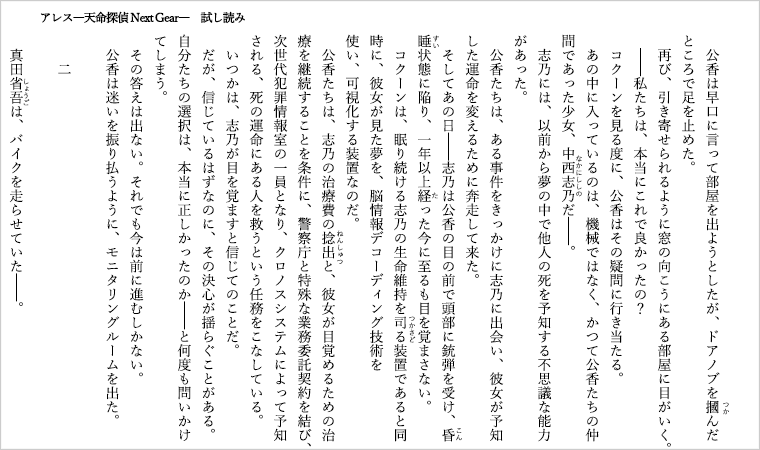 アレス―天命探偵 Next Gear― 試し読み
　公香は早口に言って部屋を出ようとしたが、ドアノブを摑んだ
ところで足を止めた。
　再び、引き寄せられるように窓の向こうにある部屋に目がいく。
　――私たちは、本当にこれで良かったの？
　コクーンを見る度に、公香はその疑問に行き当たる。
　あの中に入っているのは、機械ではなく、かつて公香たちの仲
間であった少女、中西志乃だ――。
　志乃には、以前から夢の中で他人の死を予知する不思議な能力
があった。
　公香たちは、ある事件をきっかけに志乃に出会い、彼女が予知
した運命を変えるために奔走して来た。
　そしてあの日――志乃は公香の目の前で頭部に銃弾を受け、昏
睡状態に陥り、一年以上経った今に至るも目を覚まさない。
　コクーンは、眠り続ける志乃の生命維持を司る装置であると同
時に、彼女が見た夢を、脳情報デコーディング技術を
使い、可視化する装置なのだ。
　公香たちは、志乃の治療費の捻出と、彼女が目覚めるための治
療を継続することを条件に、警察庁と特殊な業務委託契約を結び、
次世代犯罪情報室の一員となり、クロノスシステムによって予知
される、死の運命にある人を救うという任務をこなしている。
　いつかは、志乃が目を覚ますと信じてのことだ。
　だが、信じているはずなのに、その決心が揺らぐことがある。
自分たちの選択は、本当に正しかったのか――と何度も問いかけ
てしまう。
　その答えは出ない。それでも今は前に進むしかない。
　公香は迷いを振り払うように、モニタリングルームを出た。
二
真田省吾は、バイクを走らせていた――。